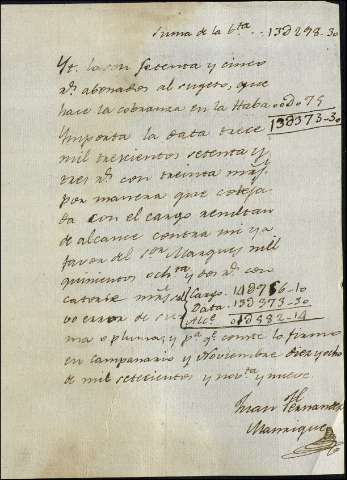 Suma de la bta... 13D298-30
Yt. la son Setenta y cinco
rs. abonados al sugeto, que
hace la cobranza en la Haba 00D075
Ymporta la data trece 13D373-30
mil trescientos setenta y
tres rs. con treinta mrs.
por manera que coteja
da con el cargo resultan
de alcance contra mi y a
favor del Sor. Marques mil
quinientos ochta. y dos rs. con
catorce mrs. Cargo. 14D956-10
Data. 13D373-30
vo error de su Alce. 01D582-14
ma o pluma, y pa. qe. conste lo firmo
en Campanario y Noviembre diez y ocho
de mil setecientos y novta. y nueve
Juan Fernandez
Manrique